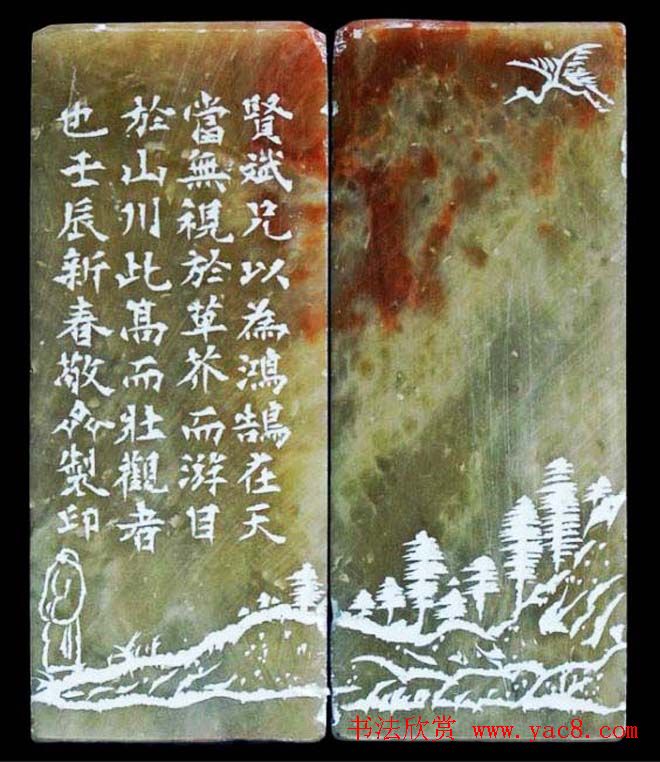 賢斌兄以為鴻鵠在天
當無視於草芥而游目
於山川此高而壯觀者
也壬辰新春敬多製印
书法欣赏 www.yac8.com